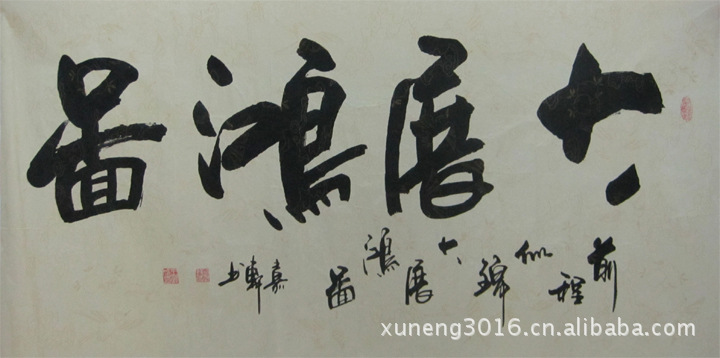 大展鴻圖
前程似錦大展鴻圖嘉軒书
xuneng3016.cn.alibaba.com